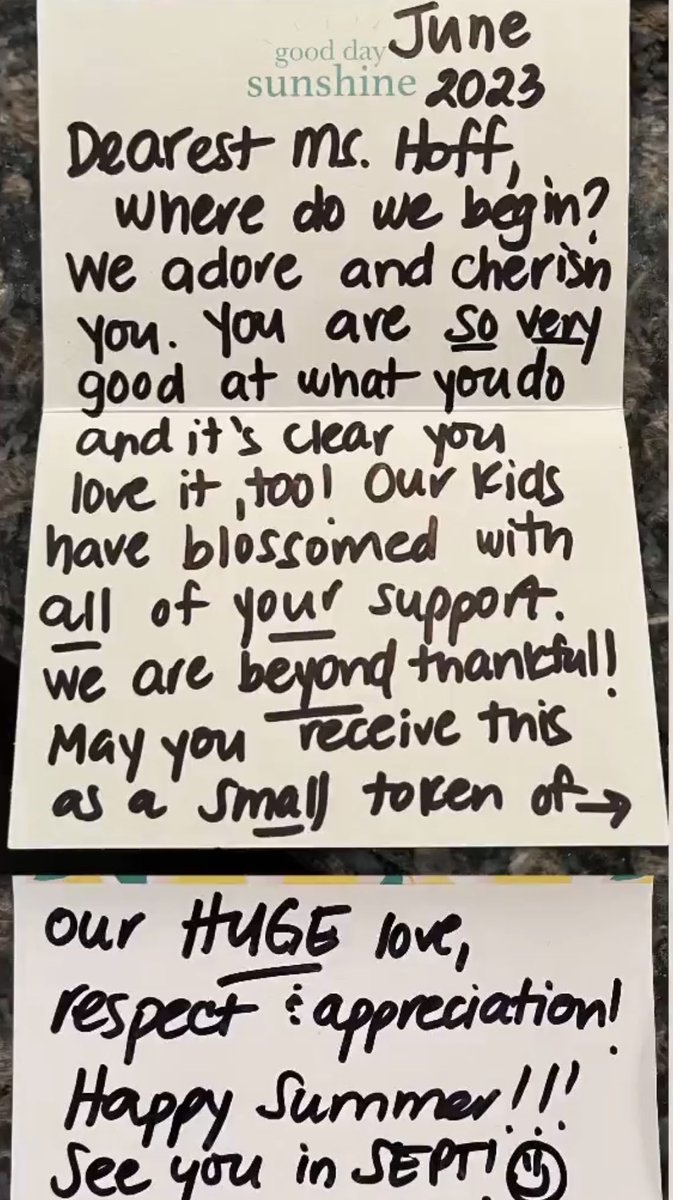 good day
sunshine
June
2023
Dearest Ms. Hoff,
where do we begin?
We adore and cherish
you. You are so very
good at what you do
and it's clear you
love it, too! Our kids
have blossomed with
all of your support.
We are beyond thankful!
May you receive this
as a small token of →
our HUGE love,
respect & appreciation!
Happy Summer!!!
See you in SEPT! ☺